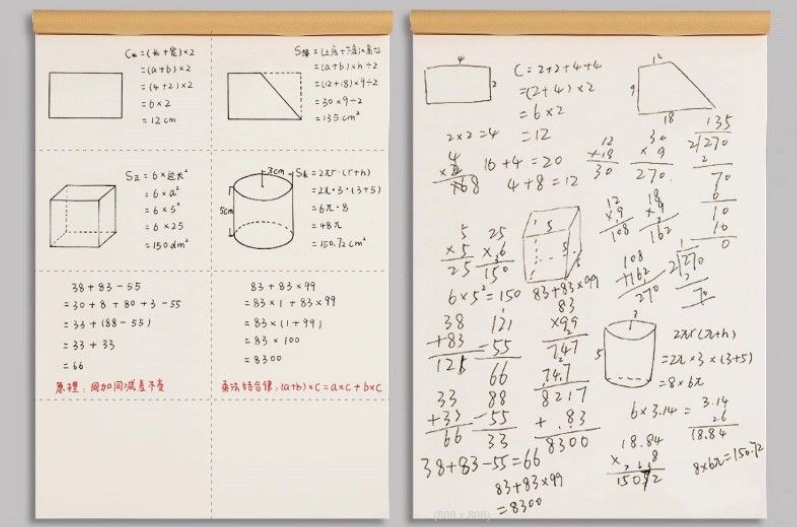 C长=(长+宽)×2
=(a+b)×2
=(4+2)×2
=6×2
=12cm
S梯=(上底+下底)×高÷2
=(a+b)×h÷2
=(12+18)×9÷2
=30×9÷2
=135cm²
S正=6×边长²
=6×a²
=6×5²
=6×25
=150dm²
3cm
5cm
S表=2πr·(r+h)
=2π·3·(3+5)
=6π·8
=48π
=150.72cm²
38+83-55
=30+8+80+3-55
=33+(88-55)
=33+33
=66
原理:同加同减差不变
83+83×99
=83×1+83×99
=83×(1+99)
=83×100
=8300
乘法结合律:(a+b)×C=a×C+b×C
4
2
C=2+2+4+4
=(2+4)×2
=6×2
=12
12
9
18
2×2=4
16+4=20
4+8=12
12
×18
30
30
×9
270
135
2/270
2
70
6
10
10
0
5
×5
25
25
×6
150
5
5
12
×9
108
18
×9
162
108
+162
270
2/270
2
70
6×5²=150
83+83×99
38
+83
121
121
-55
66
83
×99
747
747
8217
+83
8300
33
+33
66
88
-55
33
3
5
2πr(r+h)
=2π×3×(3+5)
=8×6π
6×3.14=
3.14
×6
18.84
18.84
×8
8×6π=150.72
38+83-55=66
83+83×99
=8300
(800 x 800)